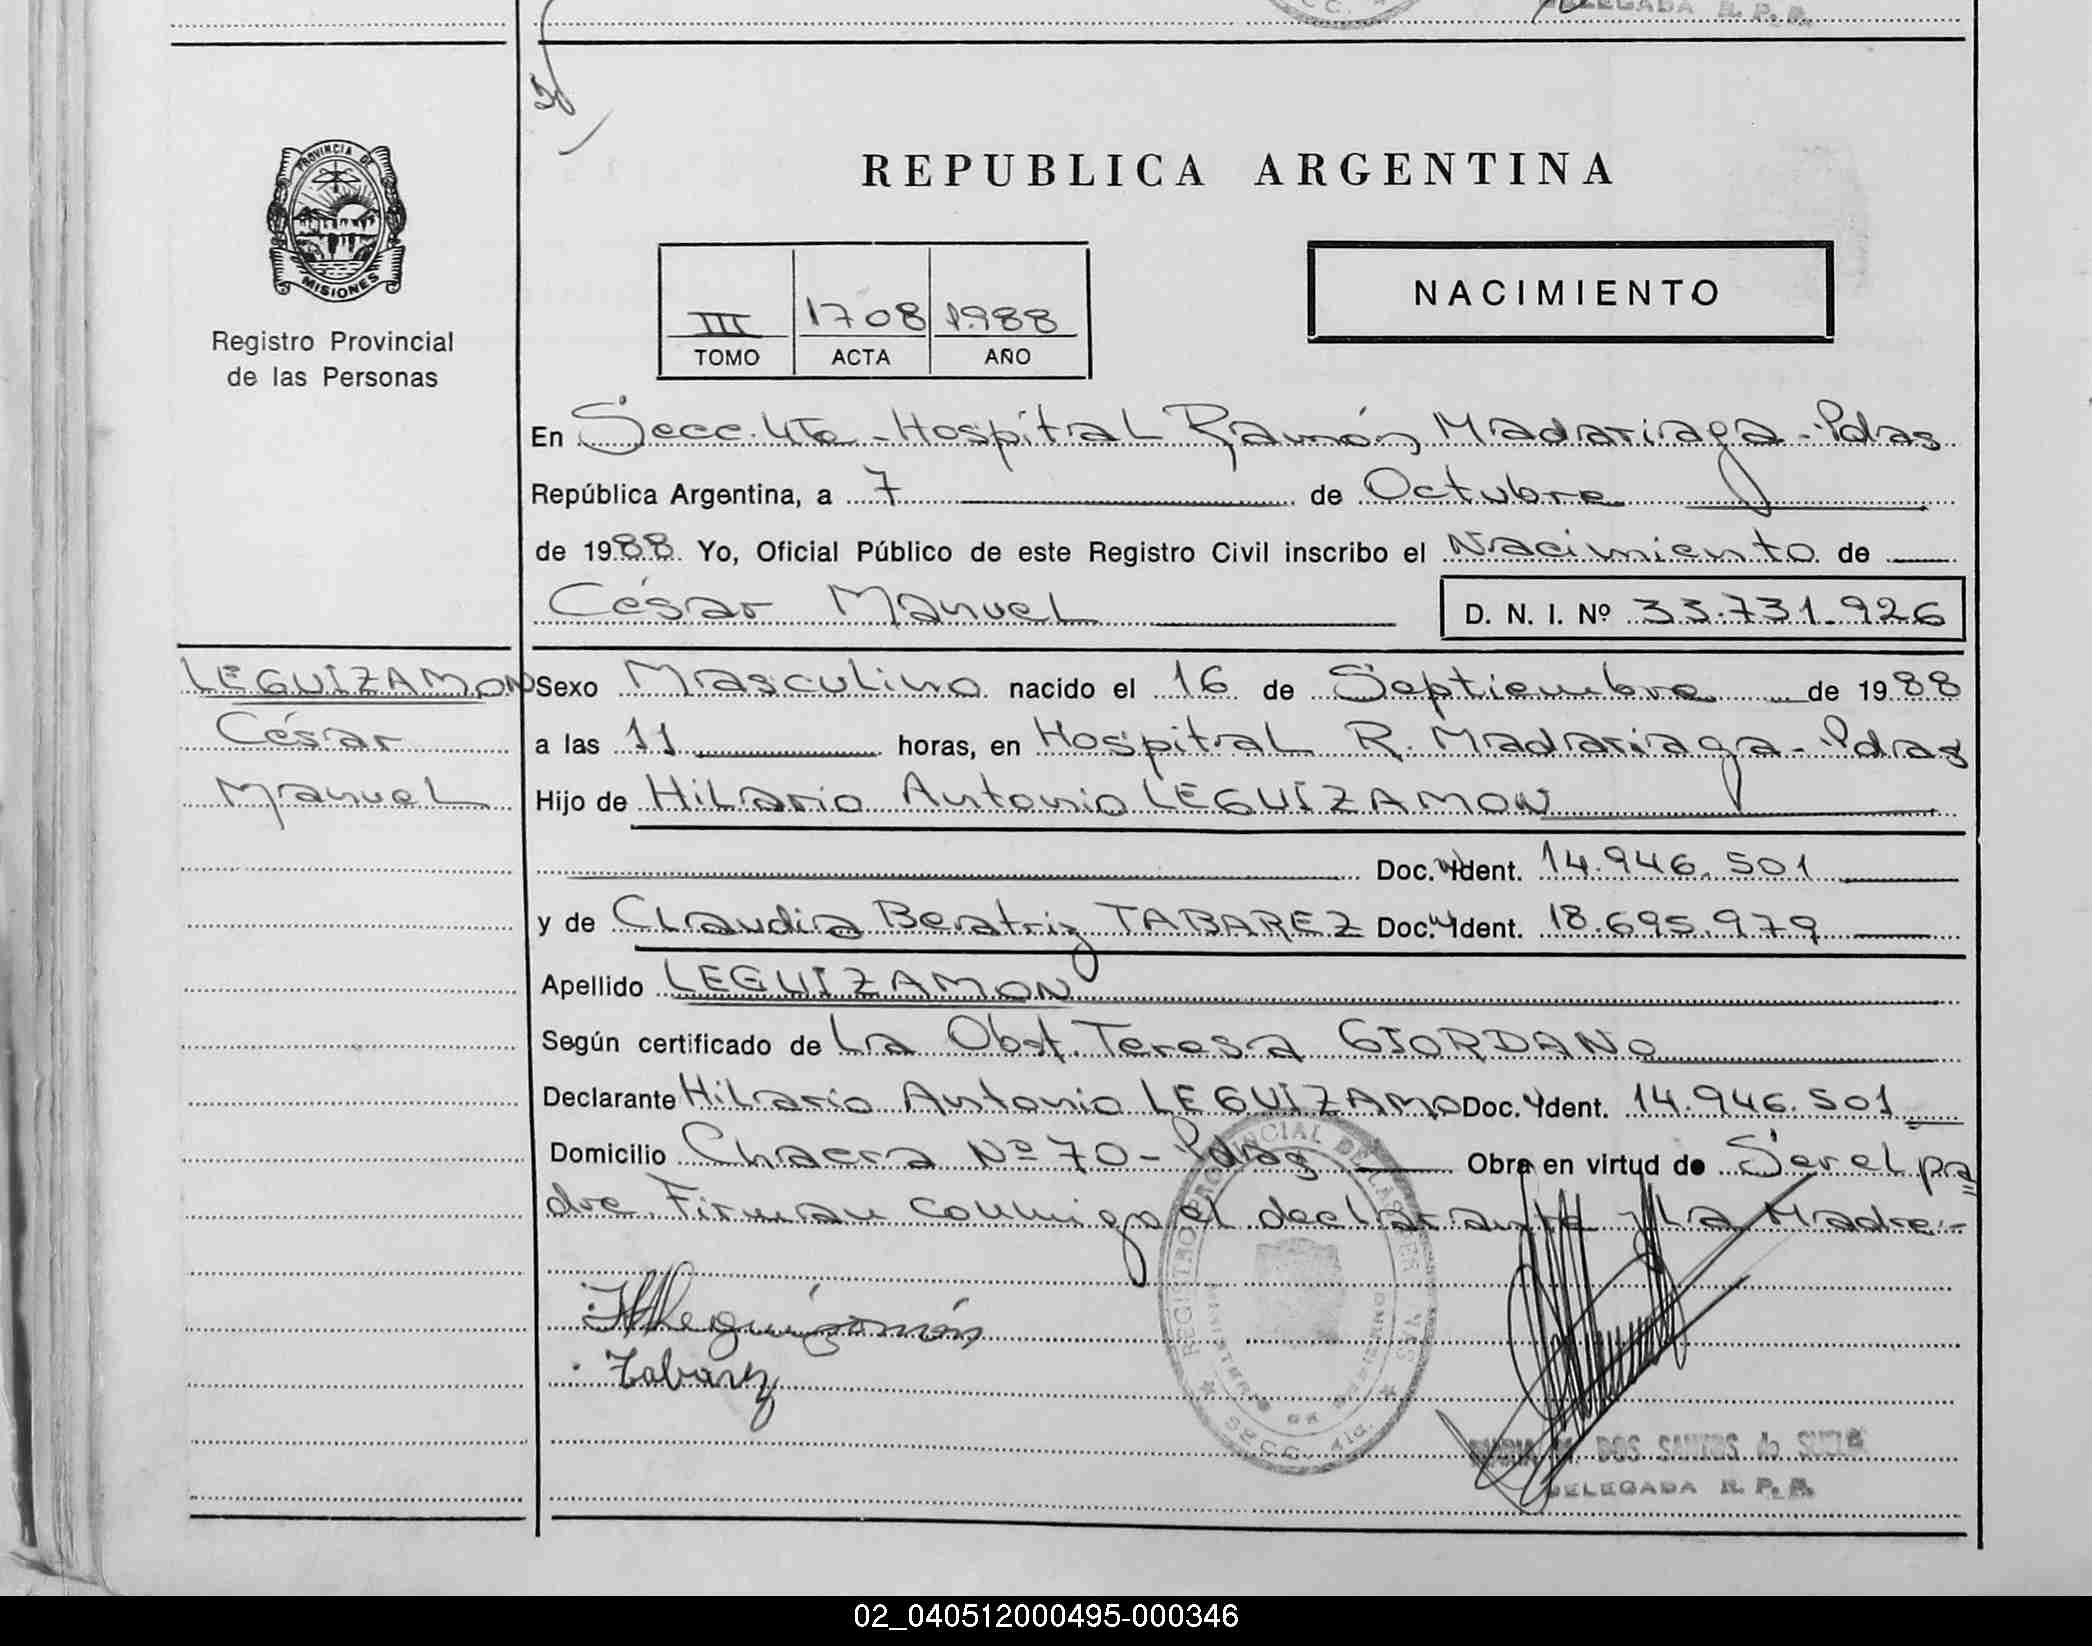 DELEGADA R. P. P.
PROVINCIA DE
MISIONES
Registro Provincial
de las Personas
REPUBLICA ARGENTINA
NACIMIENTO
III 1708 1988
TOMO ACTA AÑO
En Secc. 4ta - Hospital Ramón Madariaga - Pdas
República Argentina, a 7 de Octubre
de 1988. Yo, Oficial Público de este Registro Civil inscribo el Nacimiento de
César Manuel D. N. I. Nº 33.731.926
LEGUIZAMON
César
Manuel
Sexo Masculino nacido el 16 de Septiembre de 1988
a las 11 horas, en Hospital R. Madariaga - Pdas
Hijo de Hilario Antonio LEGUIZAMON
Doc. Ident. 14.946.501
y de Claudia Beatriz TABAREZ Doc. Ident. 18.695.979
Apellido LEGUIZAMON
Según certificado de La Obst. Teresa GIORDANO
Declarante Hilario Antonio LEGUIZAMO Doc. Ident. 14.946.501
Domicilio Chacra Nº 70 - Pdas Obra en virtud de Ser el pa
dre. Firman conmigo el declarante y La Madre.-
HALeguizamón
Tabarez
REGISTRO PROVINCIAL DE LAS PERSONAS
MINISTERIO DE GOBIERNO
SECC. 4ta.
DOS SANTOS de
DELEGADA R. P. P.
02_040512000495-000346